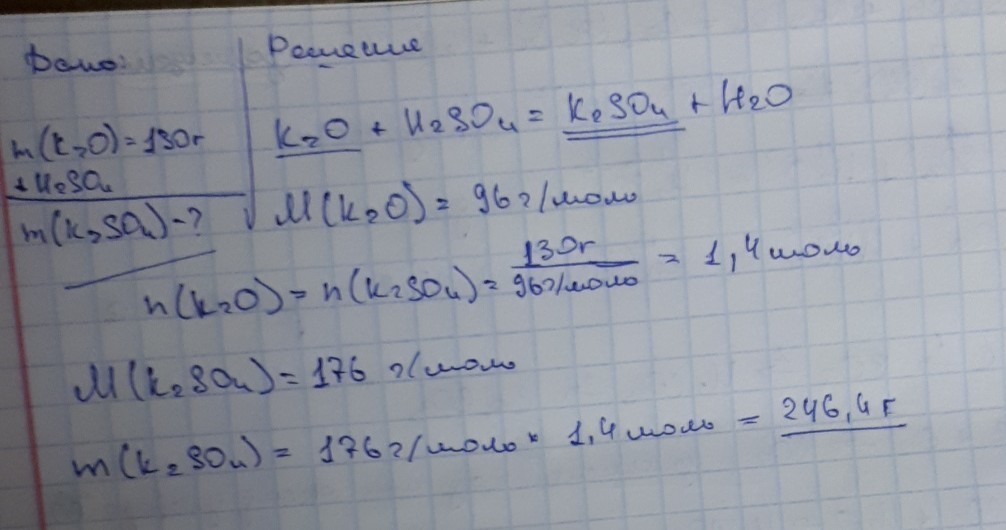 Дано:
Решение
m(K2O)=130г
+H2SO4
m(K2SO4)-?
K2O + H2SO4 = K2SO4 + H2O
M(K2O) = 96 г/моль
n(K2O) = n(K2SO4) = 130г / 96г/моль = 1,4 моль
M(K2SO4) = 176 г/моль
m(K2SO4) = 176г/моль * 1,4 моль = 246,4 г